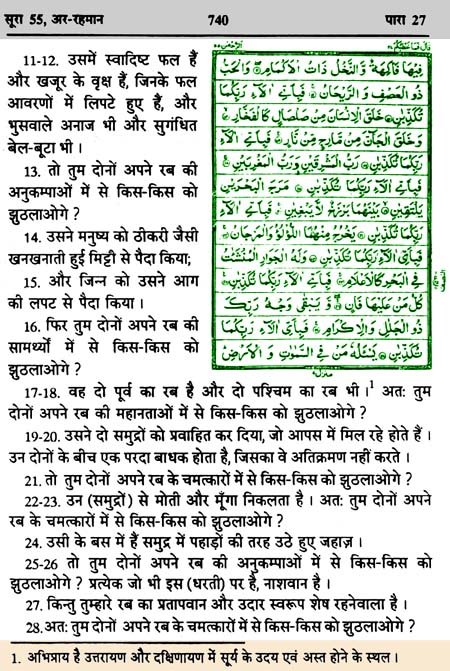 सूरा 55, अर-रहमान 740 पारा 27
11-12. उसमें स्वादिष्ट फल हैं
और खजूर के वृक्ष हैं, जिनके फल
आवरणों में लिपटे हुए हैं, और
भुसवाले अनाज भी और सुगंधित
बेल-बूटा भी ।
13. तो तुम दोनों अपने रब की
अनुकम्पाओं में से किस-किस को
झुठलाओगे ?
14. उसने मनुष्य को ठीकरी जैसी
खनखनाती हुई मिट्टी से पैदा किया;
15. और जिन्न को उसने आग
की लपट से पैदा किया ।
16. फिर तुम दोनों अपने रब की
सामर्थ्यों में से किस-किस को
झुठलाओगे ?
فِيهَا فَاكِهَةٌ وَّالنَّخْلُ ذَاتُ الْأَكْمَامِ وَالْحَبُّ
ذُو الْعَصْفِ وَالرَّيْحَانُ فَبِأَيِّ آلَاءِ رَبِّكُمَا
تُكَذِّبٰنِ خَلَقَ الْإِنْسَانَ مِنْ صَلْصَالٍ كَالْفَخَّارِ
وَخَلَقَ الْجَانَّ مِنْ مَّارِجٍ مِّنْ نَّارٍ فَبِأَيِّ آلَاءِ
رَبِّكُمَا تُكَذِّبٰنِ رَبُّ الْمَشْرِقَيْنِ وَرَبُّ الْمَغْرِبَيْنِ
فَبِأَيِّ آلَاءِ رَبِّكُمَا تُكَذِّبٰنِ مَرَجَ الْبَحْرَيْنِ
يَلْتَقِيٰنِ بَيْنَهُمَا بَرْزَخٌ لَّا يَبْغِيٰنِ فَبِأَيِّ آلَاءِ
رَبِّكُمَا تُكَذِّبٰنِ يَخْرُجُ مِنْهُمَا اللُّؤْلُؤُ وَالْمَرْجَانُ
فَبِأَيِّ آلَاءِ رَبِّكُمَا تُكَذِّبٰنِ وَلَهُ الْجَوَارِ الْمُنْشَئٰتُ
فِي الْبَحْرِ كَالْأَعْلَامِ فَبِأَيِّ آلَاءِ رَبِّكُمَا تُكَذِّبٰنِ
كُلُّ مَنْ عَلَيْهَا فَانٍ وَّيَبْقٰى وَجْهُ رَبِّكَ
ذُو الْجَلٰلِ وَالْإِكْرَامِ فَبِأَيِّ آلَاءِ رَبِّكُمَا
تُكَذِّبٰنِ يَسْئَلُهُ مَنْ فِي السَّمٰوٰتِ وَالْأَرْضِ
17-18. वह दो पूर्व का रब है और दो पश्चिम का रब भी ।1 अतः तुम
दोनों अपने रब की महानताओं में से किस-किस को झुठलाओगे ?
19-20. उसने दो समुद्रों को प्रवाहित कर दिया, जो आपस में मिल रहे होते हैं ।
उन दोनों के बीच एक परदा बाधक होता है, जिसका वे अतिक्रमण नहीं करते ।
21. तो तुम दोनों अपने रब के चमत्कारों में से किस-किस को झुठलाओगे ?
22-23. उन (समुद्रों) से मोती और मूँगा निकलता है । अतः तुम दोनों अपने
रब के चमत्कारों में से किस-किस को झुठलाओगे ?
24. उसी के बस में हैं समुद्र में पहाड़ों की तरह उठे हुए जहाज़ ।
25-26 तो तुम दोनों अपने रब की अनुकम्पाओं में से किस-किस को
झुठलाओगे ? प्रत्येक जो भी इस (धरती) पर है, नाशवान है ।
27. किन्तु तुम्हारे रब का प्रतापवान और उदार स्वरूप शेष रहनेवाला है ।
28. अतः तुम दोनों अपने रब के चमत्कारों में से किस-किस को झुठलाओगे ?
1. अभिप्राय है उत्तरायण और दक्षिणायण में सूर्य के उदय एवं अस्त होने के स्थल ।